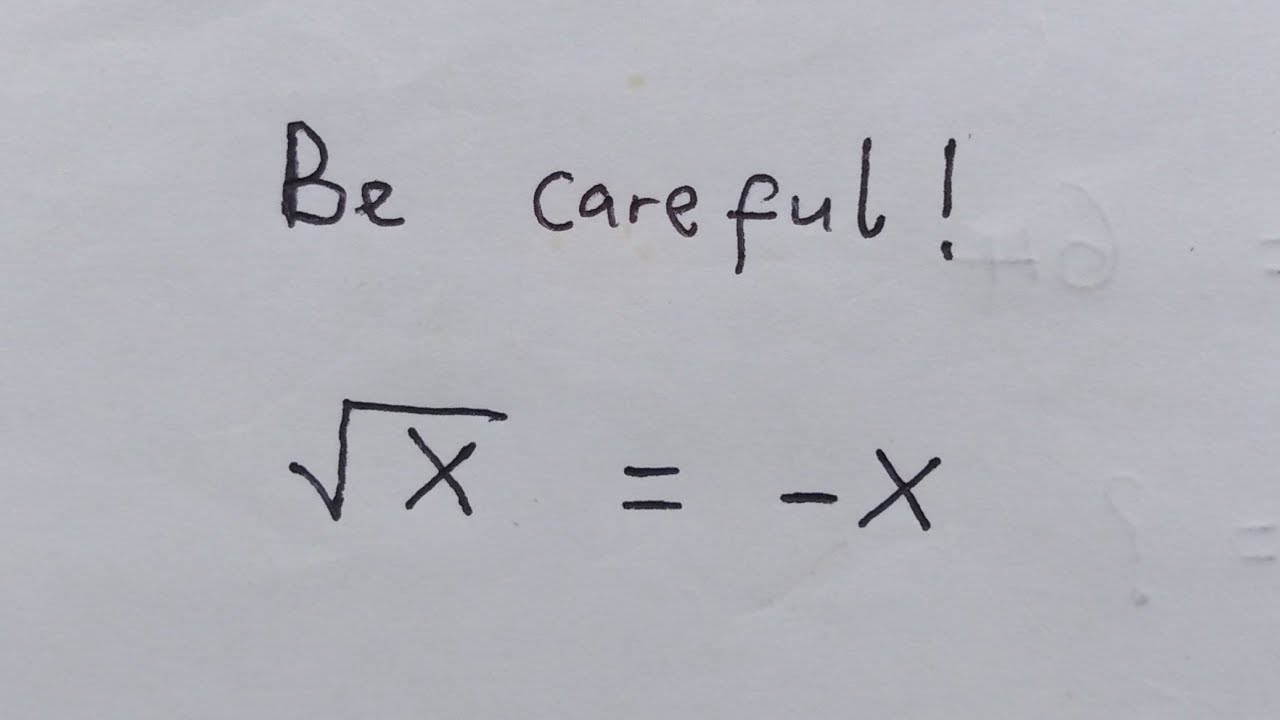 Be careful!
√x = -x